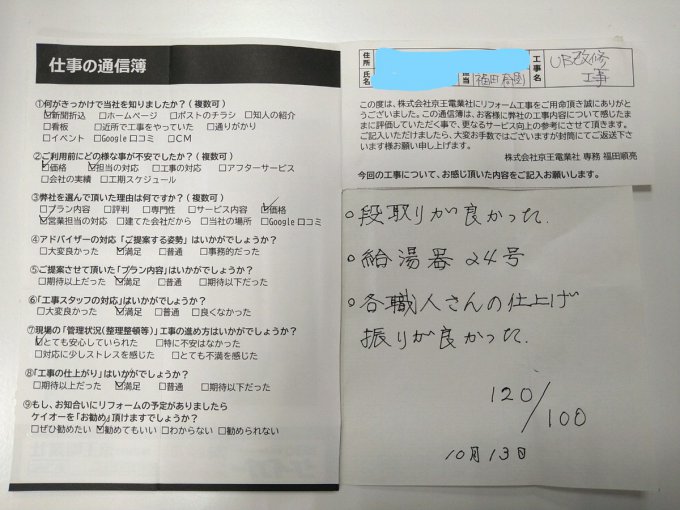 仕事の通信簿
①何がきっかけで当社を知りましたか?(複数可)
☑新聞折込 □ホームページ □ポストのチラシ □知人の紹介
□看板 □近所で工事をやっていた □通りがかり
□イベント □Google口コミ □CM
②ご利用前にどの様な事が不安でしたか?(複数可)
☑価格 ☑担当の対応 □工事の対応 □アフターサービス
□会社の実績 □工期スケジュール
③弊社を選んで頂いた理由は何ですか?(複数可)
□プラン内容 □評判 □専門性 □サービス内容 ☑価格
☑営業担当の対応 □建てた会社だから □当社の場所 □Google口コミ
④アドバイザーの対応「ご提案する姿勢」はいかがでしょうか?
□大変良かった ☑満足 □普通 □事務的だった
⑤ご提案させて頂いた「プラン内容」はいかがでしょうか?
□期待以上だった ☑満足 □普通 □期待以下だった
⑥「工事スタッフの対応」はいかがでしょうか?
□大変良かった ☑満足 □普通 □良くなかった
⑦現場の「管理状況(整理整頓等)」工事の進め方はいかがでしょうか?
☑とても安心していられた □特に不安はなかった
□対応に少しストレスを感じた □とても不満を感じた
⑧「工事の仕上がり」はいかがでしょうか?
□期待以上だった ☑満足 □普通 □期待以下だった
⑨もし、お知合いにリフォームの予定がありましたら
ケイオーを「お勧め」頂けますでしょうか?
□ぜひ勧めたい ☑勧めてもいい □わからない □勧められない
住所
氏名
担当
福田
工事名
UB改修
工事
この度は、株式会社京王電業社にリフォーム工事をご用命頂き誠にありがと
うございました。この通信簿は、お客様に弊社の工事内容について感じたま
まに評価していただく事で、更なるサービス向上の参考にさせて頂きます。
ご記入いただけましたら、大変お手数ではございますが封筒にてご返送下さ
います様お願い申し上げます。
株式会社京王電業社 専務 福田順亮
今回の工事について、お感じ頂いた内容をご記入お願いします。
○段取りが良かった.
○給湯器24号
○各職人さんの仕上げ
振りが良かった.
120/100
10月13日